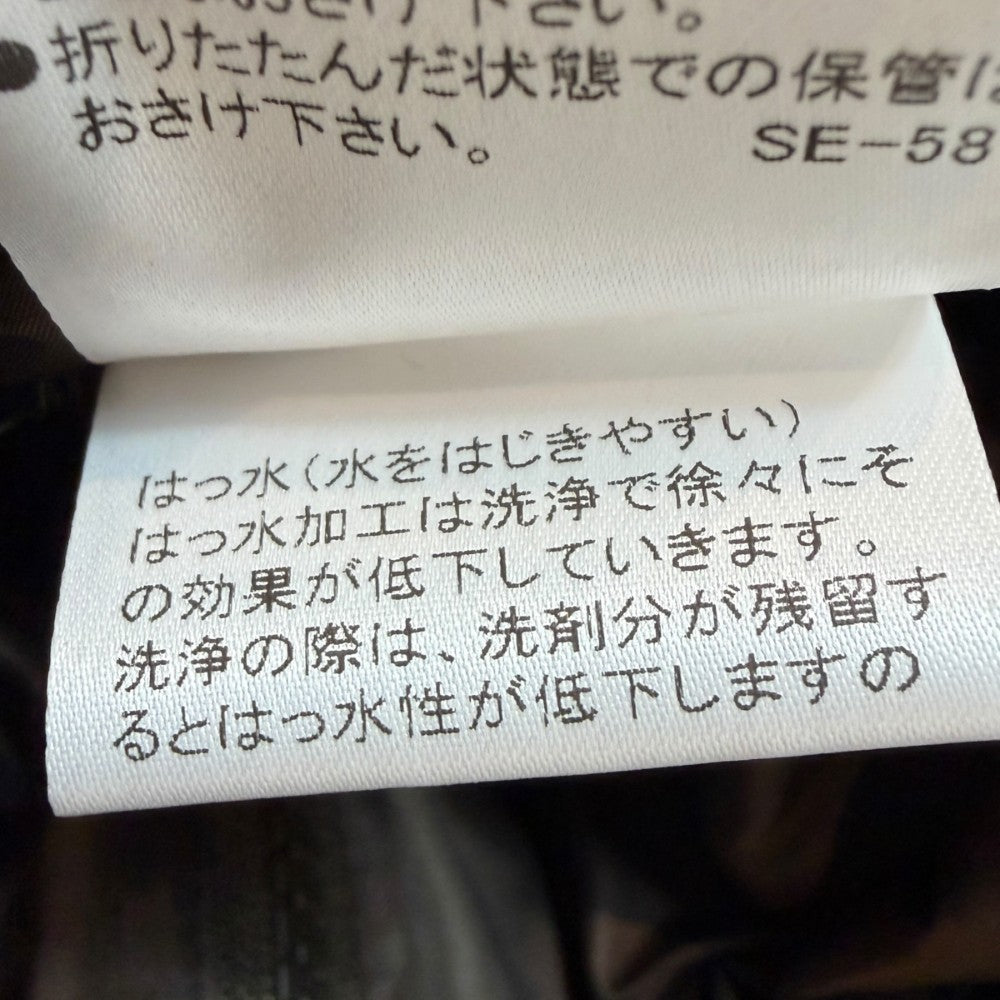 おさけ下さい。
●折りたたんだ状態での保管は
おさけ下さい。
SE-58
はっ水(水をはじきやすい)
はっ水加工は洗浄で徐々にそ
の効果が低下していきます。
洗浄の際は、洗剤分が残留す
るとはっ水性が低下しますの